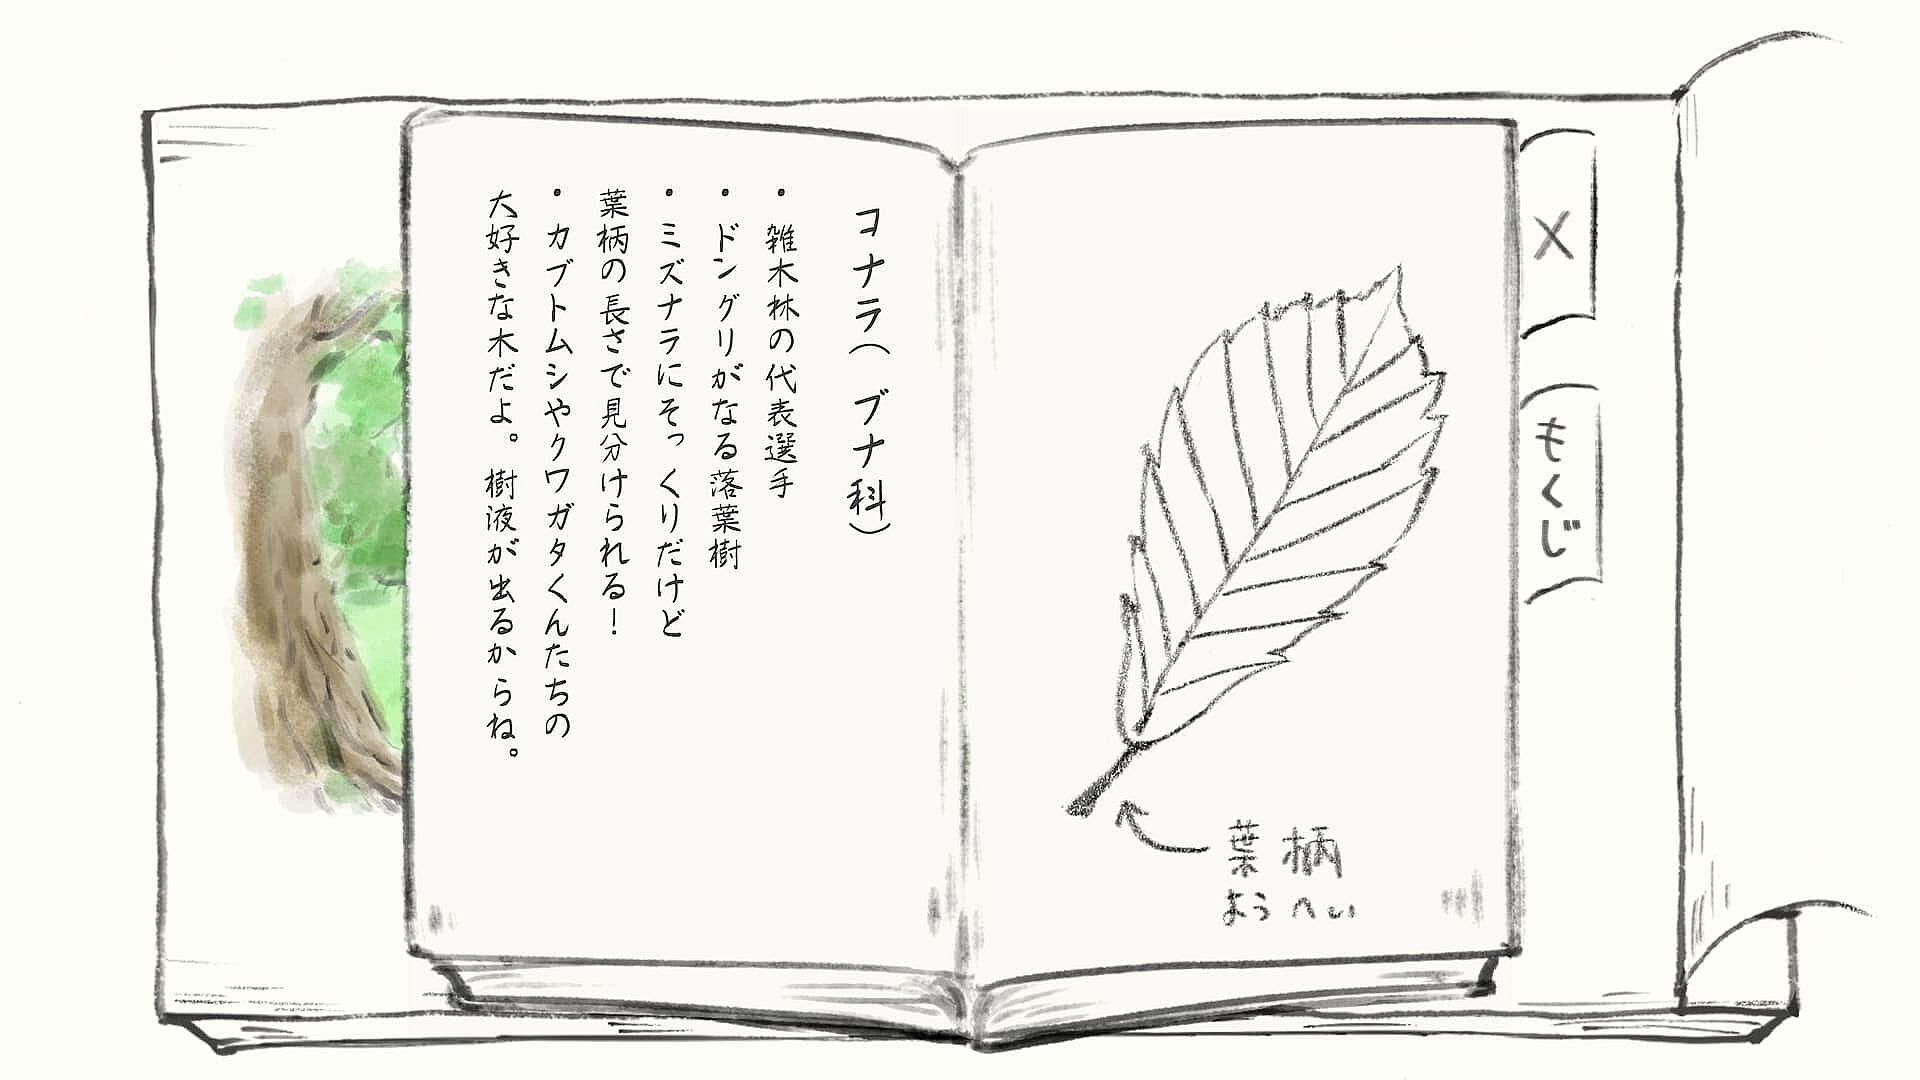 コナラ（ブナ科）
・雑木林の代表選手
・ドングリがなる落葉樹
・ミズナラにそっくりだけど
葉柄の長さで見分けられる！
・カブトムシやクワガタくんたちの
大好きな木だよ。樹液が出るからね。
葉柄
ようへい
X
もくじ